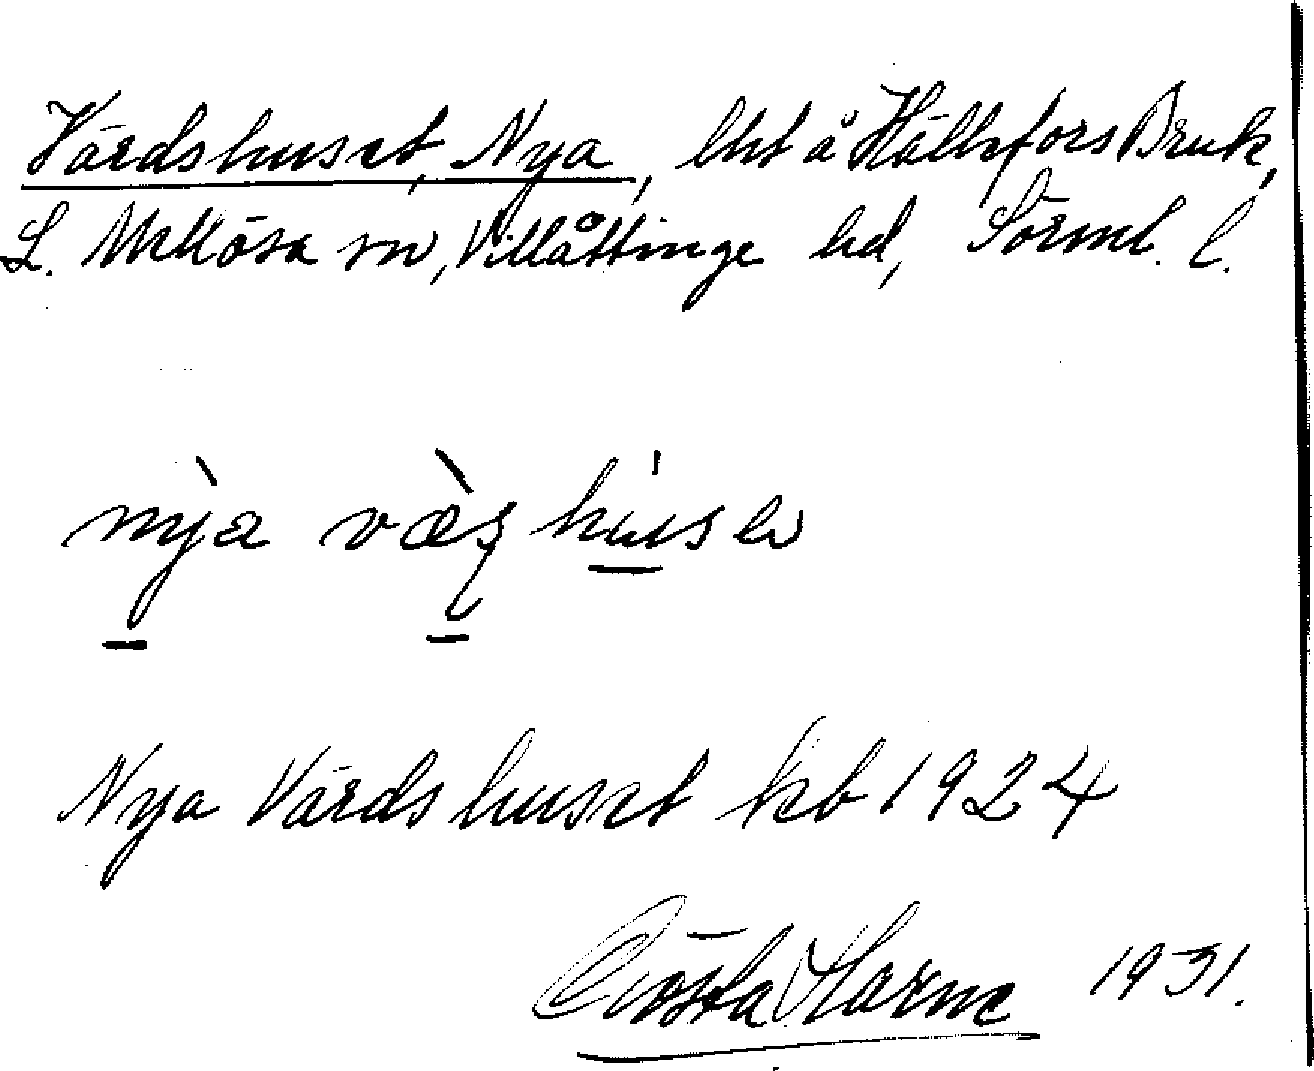 Värdshuset, Nya, lht å Hällefors Bruk,
L. Mellösa sn, Villåttinge hd, Sörml. l.
nỳa væ̀ʂhúsə
Nya Värdshuset kb 1924
Gösta Harne 1931.